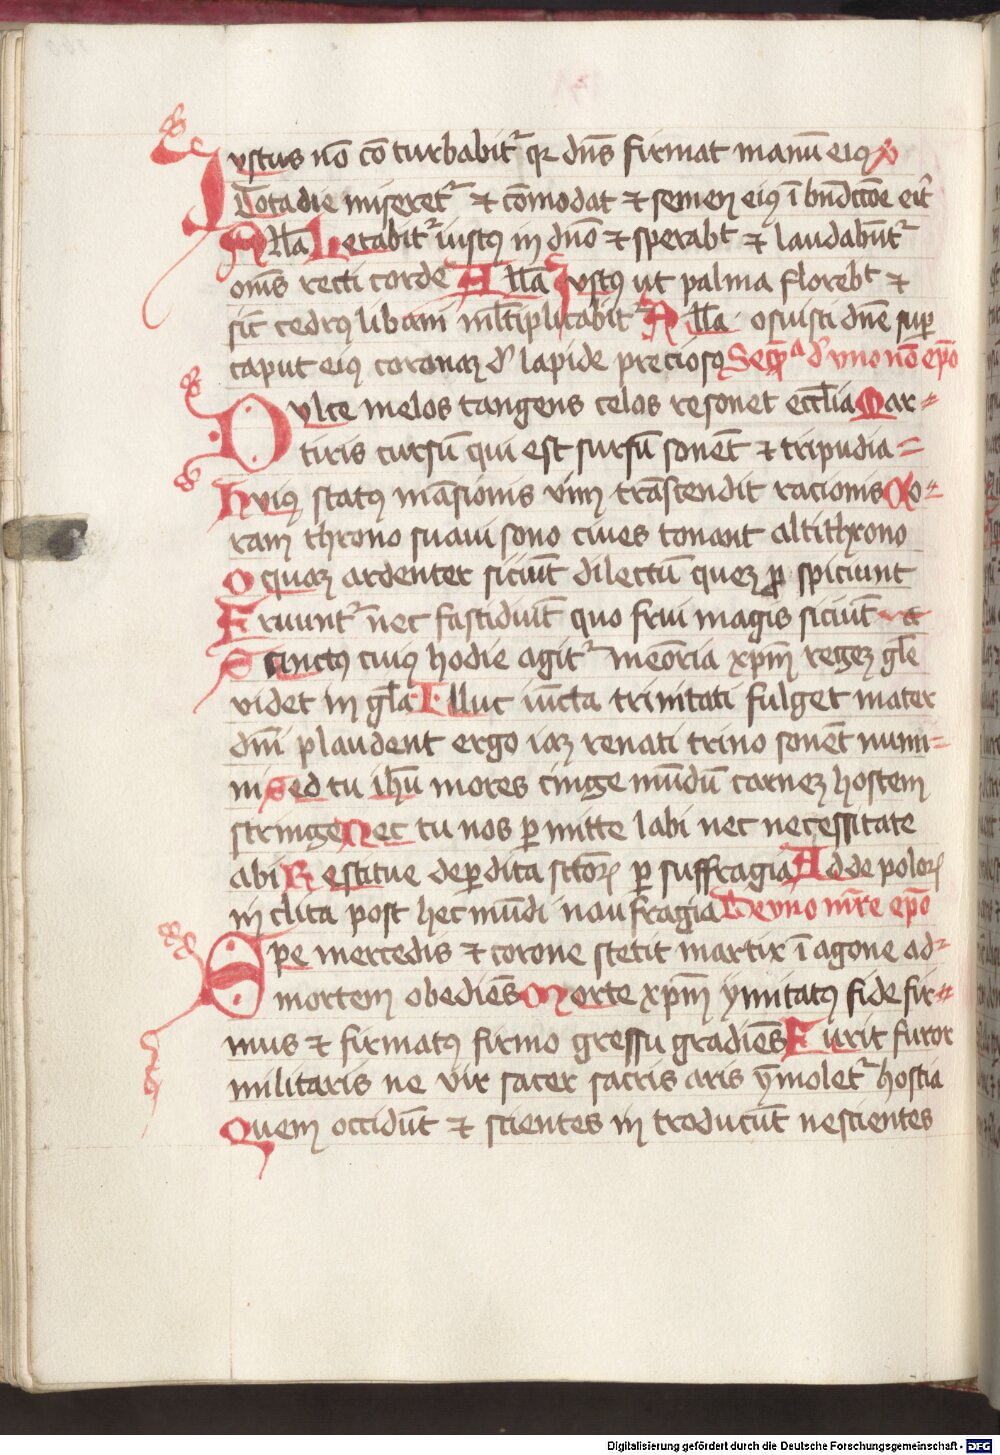 Iustus nō cō turbabit᷑ qꝛ dn̄s firmat manū eiꝯ v̉
Tota die miseret᷑ et cōmodat et semen eiꝯ ī bn̄dictōe erit
All̄a Letabit᷑ iustꝯ in dn̄o et sperabt et laudabūt᷑
om̄s recti corde All̄a Iustꝯ ut palma florebt et
sic̄ cedrꝯ libani ml̄tiplicabit᷑ All̄a Posuisti dn̄e suꝑ
caput eiꝯ coronaꝫ d̕ lapide precioso Seqꝫa d̕ vno nō epō
Dulce melos tangens celos resonet eccl̄ia Mar⸗
tiris cursū qui est sursū sonēt et tripudia⸗
Huiꝯ statꝯ māsionis vim trāscendit racionis Co⸗
ram throno suaui sono ciues tonant altithrono
O quaꝫ ardenter siciūt dilectū queꝫ ꝓ spiciunt
Fruunt᷑ nec fastidiūt quo frui magis siciūt
Sanctꝯ cuiꝯ hodie agit᷑ memōria xp̄m regeꝫ gl̄e
videt in gl̄a Illuc iūcta trinitati fulget mater
dn̄i plaudent ergo iaꝫ renati trino sonēt numi⸗
ni Sed tu ih̄u mores cinge mūdū carneꝫ hostem
stringe Nec tu nos ꝑmitte labi nec necessitate
abi Restitue deꝑdita sctōꝝ ꝑ suffragia Adde poloꝝ
in clita post hec mūdi naufragia De vno mr̄e epō
Spe mercedis et corone stetit martir ī agone ad⸗
mortem obediēs Morte xp̄m ymitatꝯ fide fir⸗
mus et firmatꝯ firmo gressu gradiēs Furit furor
militaris ne vir sacer sacris aris ȳmolet᷑ hostia
Quem occidūt et scientes in traducūt nescientes
Digitalisierung gefördert durch die Deutsche Forschungsgemeinschaft - DFG